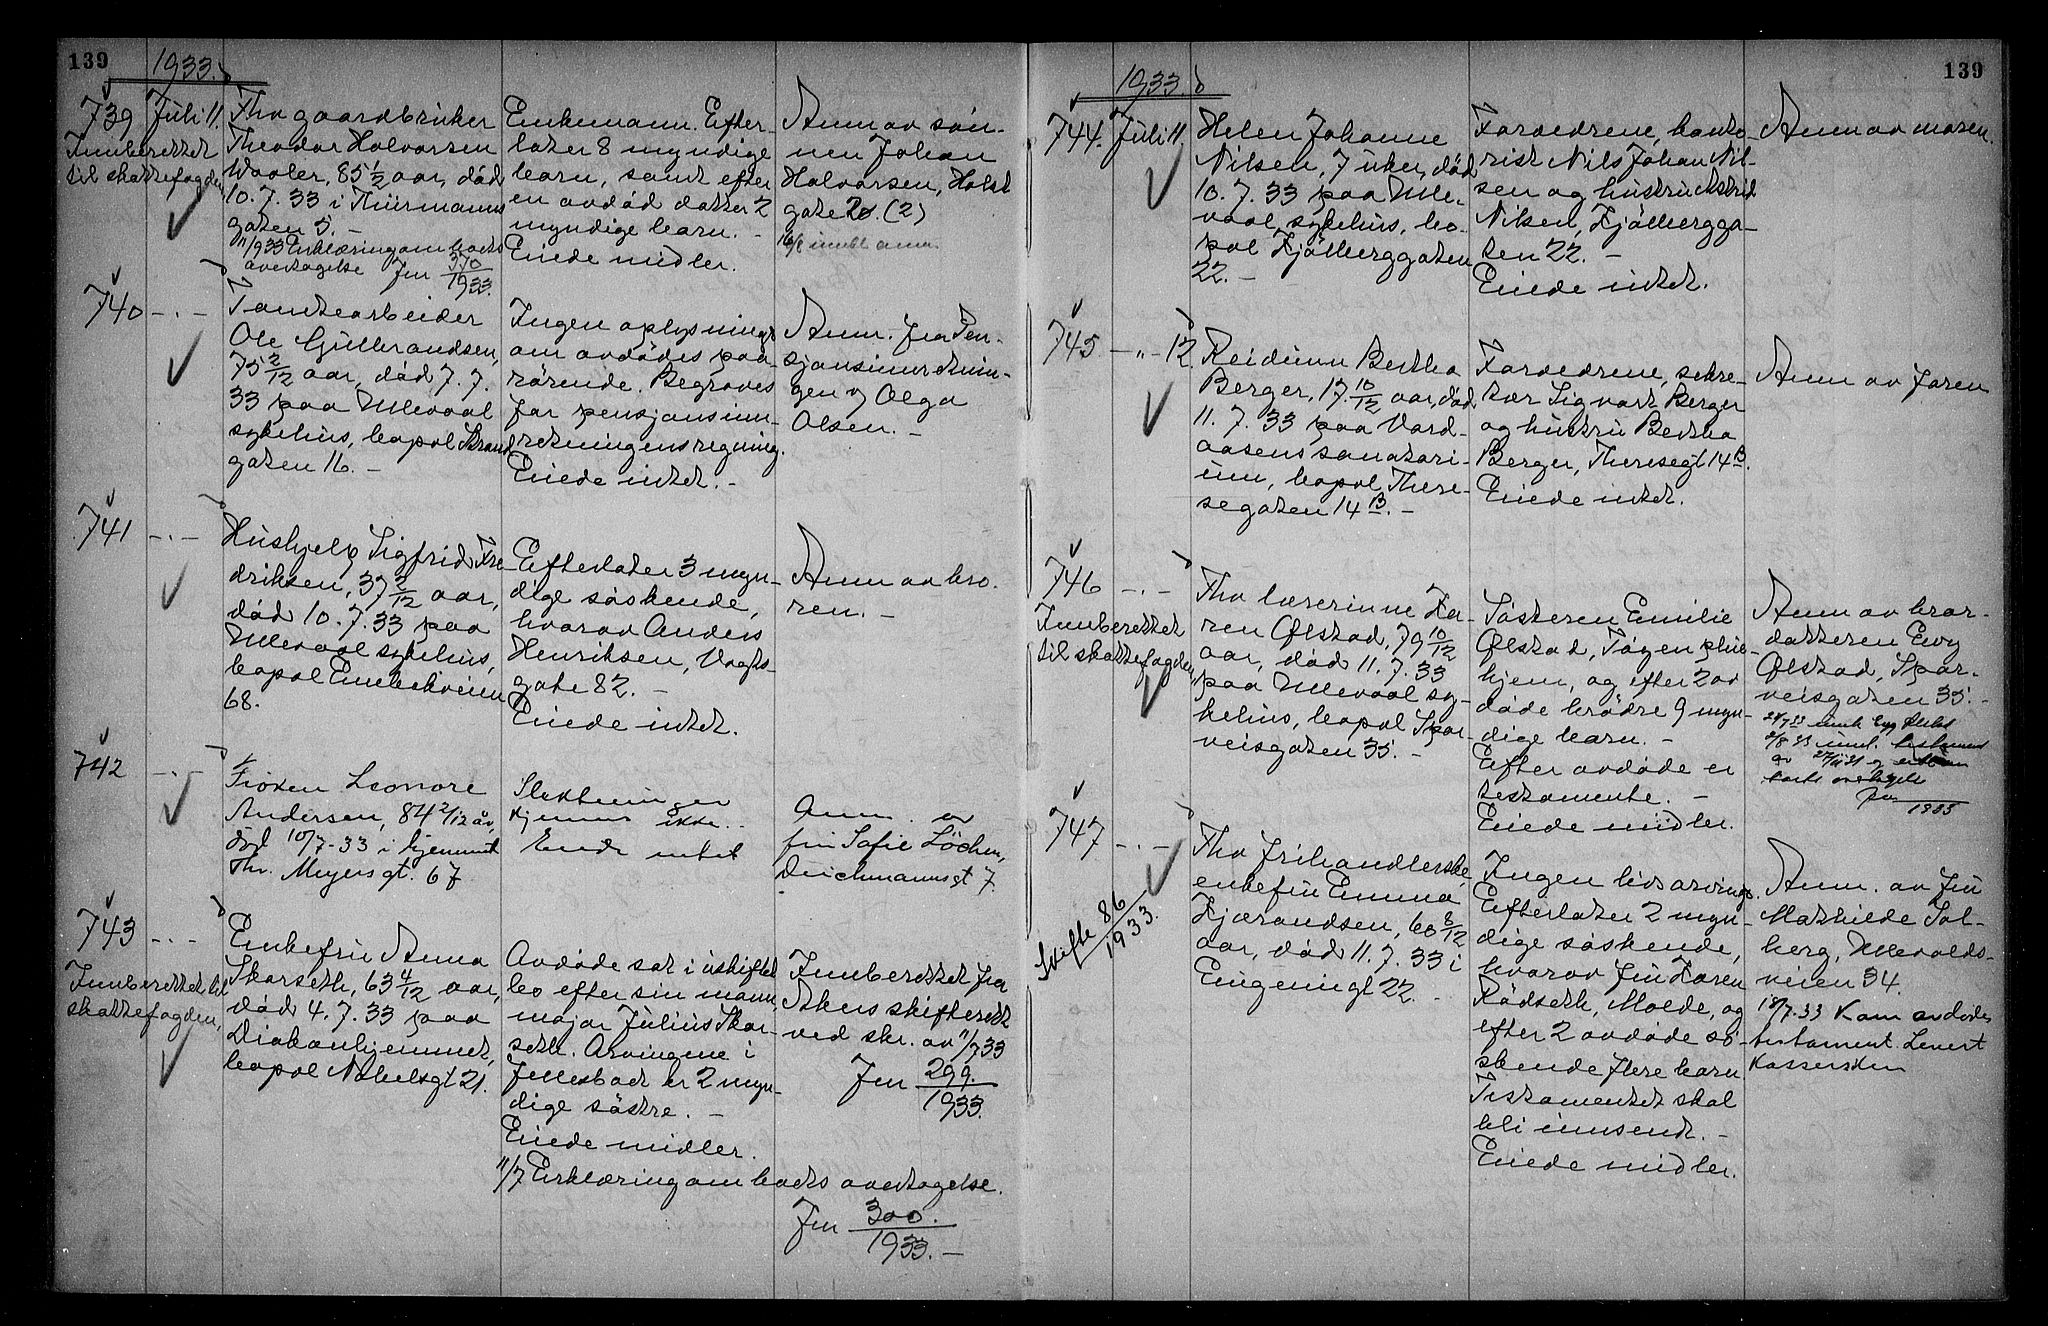 139
1933.
739 Juli 11.
Innberettet
til skattefogden,
Fhv gaardbruker
Theodor Halvorsen
Waaler, 85 1/2 aar, död
10. 7. 33 i Thurmanns
gaten 5. –
11/ 1933 Erklæring om boets
overtagelse Jnr 370/1933.
Enkemann. Efter-
later 8 myndige
barn, samt efter
en avdöd datter 2
myndige barn. –
Eiede midler.
Anm av søn-
nen Johan
Halvorsen, Holst
gate (2)
740 – . –
Tomtearbeider
Ole Gulbrandsen,
75 2/12 aar, död 7. 7.
33 paa Ullevaal
sykehus, bopol Strand
gaten 16. –
Ingen oplysninger
om avdödes paa-
rörende. Begraves
for pensjonsinn-
retningens regning.
Eiede intet. –
Anm. fra Pen-
sjonsinnretnin-
gen v/ Olga
Olsen. –
741 – . –
Hushjelp Sigfrid Fre
driksen, 37 2/12 aar,
död 10. 7. 33 paa
Ullevaal sykehus,
bopol Enebakveien
68.
Efterlater 3 myn-
dige söskende,
hvorav Anders
Henriksen, Vogts-
gate 82. –
Eiede intet.
Anm av bro-
ren. –
742 – . –
Frøken Leonore
Andersen, 84 2/12 år,
död 10/7-33 i hjemmet
Thv. Meyersgt. 67
Slektninger
kjennes ikke.
Eiede intet
Anm. av
fru Sofie Löchen,
Deichmannsgt 7.
743 – . –
Innberettet til
skattefogden,
Enkefru Anna
Skarseth, 63 4/12 aar,
död 4. 7. 33 paa
Diakonhjemmet,
bopol Nobelsgt 21.
Avdöde sat i uskiftet
bo efter sin mann,
major Julius Skar-
seth. Arvingene i
fellesboet er 2 myn-
dige söstre. –
Eiede midler.
11/7 Erklæring om boets overtagelse.
Jnr 300./1933. –
Innberettet fra
Akers skifterett
ved skr. av 11/7 33
Jnr 299./1933.
139
1933.
744. Juli 11.
Helen Johanne
Nilsen, 7 uker, död
10. 7. 33 paa Ulle-
vaal sykehus, bo-
pol Kjölberggaten
22. –
Foreldrene, konto-
rist Nils Johan Nil-
sen og hustru Astrid
Nilsen, Kjölbergga-
ten 22. –
Eiede intet.
Anm av moren.
745 – „ – 12.
Reidunn Bertha
Berger, 17 10/12 aar, död
11. 7. 33 paa Vard-
aasen sanatori-
um, bopol There-
segaten 14 B. –
Foreldrene, sekre-
tær Sigvart Berger
og hustru Bertha
Berger, Theresegt 14 B.
Eiede intet.
Anm av faren
746 – . –
Innberettet
til skattefogden,
Fhv lærerinne Ka-
ren Ølstad, 79 10/12
aar, död 11. 7. 33
paa Ullevaal sy-
kehus, bopol Spor-
veisgaten 35. –
Søsteren Emilie
Ølstad, Töyen pleie-
hjem, og efter 2 av
döde brödre 9 myn-
dige barn. –
Efter avdöde er
testamente. –
Eiede midler.
Anm av bror-
datteren Evy
Ølstad, Spor-
veisgaten 35. –
1933
747 – . –
Skifte 86/1933.
Fhv frihandlerske,
enkefru Emma
Kjærandsen, 60 8/12
aar, död 11. 7. 33 i
Eugeniigt 22. –
Ingen livsarvinger.
Efterlater 2 myn-
dige söskende,
hvorav fru Karen
Rödseth, Molde, og
efter 2 avdöde sö-
skende flere barn
Testamentet skal
bli innsendt. –
Eiede midler.
Anm. av fru
Mathilde Sol-
berg, Ullevolds-
veien 34.
18/7.33 Kom avdödes
testament. Levert
Kassereren